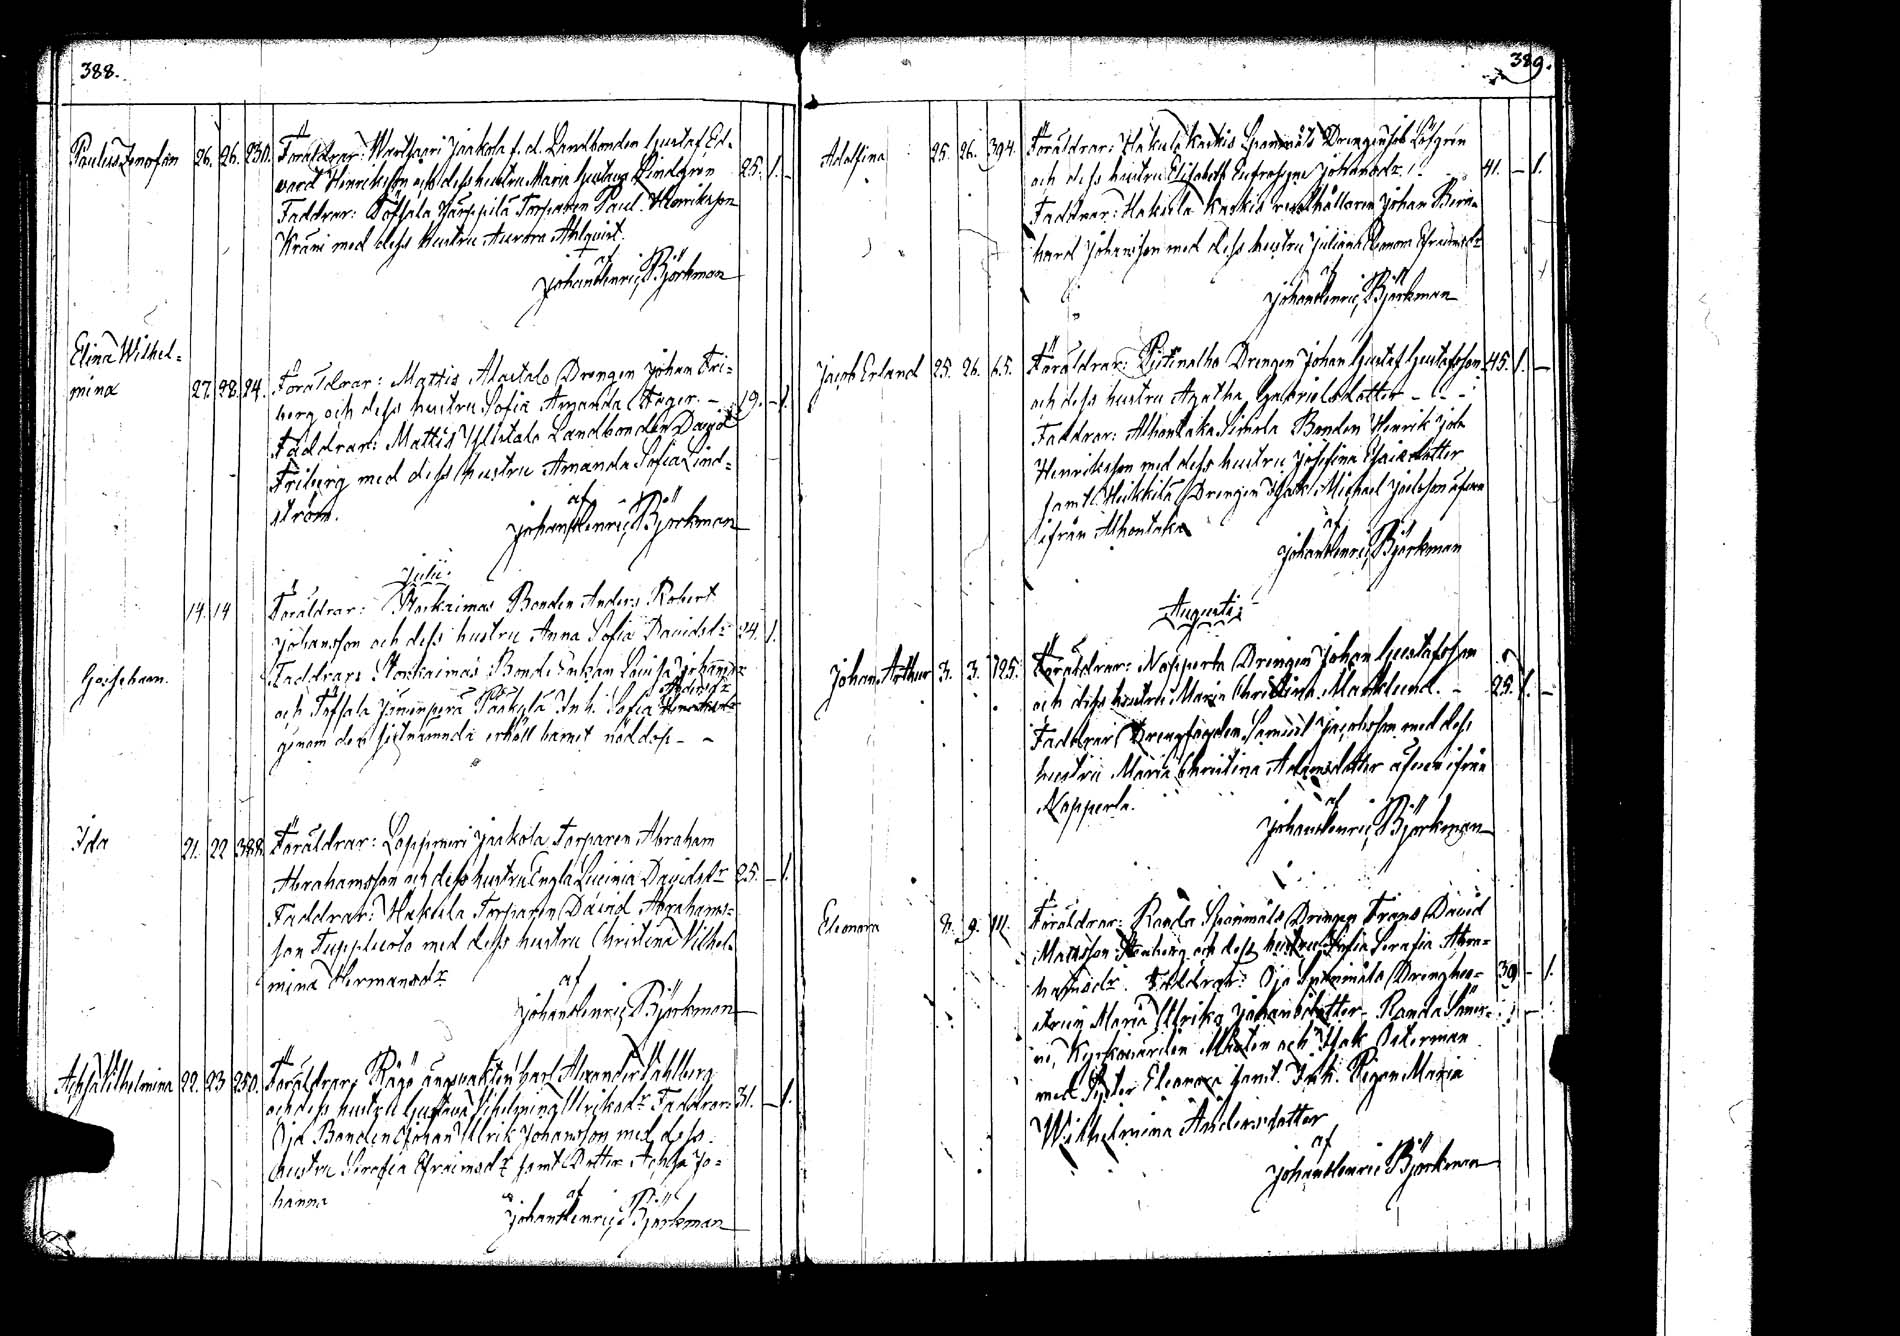 388.
Paulus Zenofon 26. 26. 230. Föräldrar: Wartsaari Jaakola f. d. Landbonden Gustaf Ed-
vard Henriksson och dess hustru Maria Gustava Lindgren 25. 1. -
Faddrar: Töfsala Järppilä Torparen Paul Henriksson
Kräni med dess hustru Aurora Ahlqvist.
af
Johan Henric Björkman
Elina Wilhel=
mina 27. 28. 24. Föräldrar: Mattis Alastalo Drengen Johan Fri=
berg och dess hustru Sofia Amanda Häger. - 19. - 1.
Faddrar: Mattis Ylistalo Landbonden David
Friberg med dess hustru Amanda Sofia Lind=
ström.
af
Johan Henric Björkman
Julii.
14. 14 Föräldrar: Storkaimas Bonden Anders Robert
Johansson och dess hustru Anna Sofia Davidsdr 24. 1.
Gossebarn. Faddrar: Storkaimas Bonde Enkan Lovisa Johansdr
och Töfsala Inh. Sofia Andersdr
genom den sistnämnda erhöll barnet nöddop - -
Ida 21. 22 388. Föräldrar: Loppmeri Jaakola Torparen Abraham
Abrahamsson och dess hustru Engla Lucinia Davidsdr 25. - 1.
Faddrar: Hakula Torparen David Abrahams=
son Tuppluoto med dess hustru Christina Vilhel-
mina Hermansdr
af
Johan Henric Björkman
Achsa Vilhelmina 22. 23 250. Föräldrar: Rägö ängvakten Karl Alexander Dahlberg
och dess hustru Gustava Vilhelmina Ulriksdr Faddrar: 31. - 1.
Öjo Bonden Johan Ulrik Johansson med dess
hustru Serafia Efraimsdr samt Dotter Achsa Jo=
hanna
af
Johan Henric Björkman
389.
Adolfina 25. 26. 394. Föräldrar: Hakula Kaskis Spanmåls Drengen Löfgrén
och dess hustru Elisabeth Eufrosyne Johansdr 41. - 1.
Faddrar: Hakula Kaskis rusthållaren Johan Bern=
hard Johansson med dess hustru Juliana Eleonora Efraimsdr
af
Johan Henric Björkman
Jacob Erland 25. 26. 65. Föräldrar: Drengen Johan Gustaf Gustafsson 45. 1. -
och dess hustru Agatha Gabrielsdotter - - -
Faddrar: Alhontaka Simola Bonden Henrik Joh.
Henriksson med dess hustru Josefina Esaiædotter
samt Heikkilä Drengen Isak Michael Jacobsson äfven
ifrån Alhontaka
af
Johan Henric Björkman
Augusti:
Johan Arthur 3. 3. 125. Föräldrar: Nopperla Drengen Johan Gustafsson
och dess hustru Maria Christina Marklund. - 25. 1. -
Faddrar: Drengfogden Samuel Jacobsson med dess
hustru Maria Christina Adamsdotter äfven ifrån
Nopperla.
af
Johan Henric Björkman
Eleonora 8. 9. 111. Föräldrar: Randa Spanmåls Drengen Frans David
Matsson Stenberg och dess hustru Sofia Serafia Abra=
hamsdr. Faddrar: Öjo Spanmåls Drenghus=
strun Maria Ulrika Johansdotter - Randa 39 - 1.
Kyrkovärden Mårten och Isak Österman
med Syster Eleonora samt Inh. Pigan Maria
Wilhelmina Andersdotter
af
Johan Henric Björkman